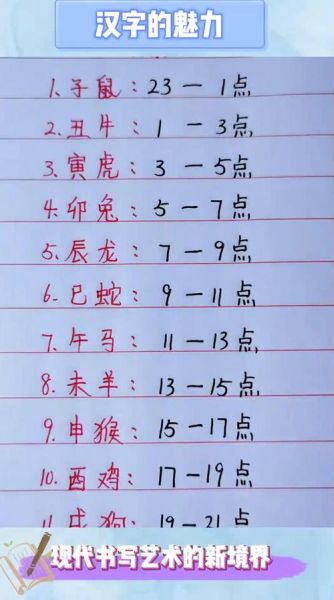 汉字的魅力
1.子鼠：23 — 1点
2.丑牛：1 — 3点
3.寅虎：3 — 5点
4.卯兔：5 — 7点
5.辰龙：7 — 9点
6.巳蛇：9 — 11点
7.午马：11 — 13点
8.未羊：13 — 15点
9.申猴：15 — 17点
10.酉鸡：17 — 19点
11.戌狗：19 — 21点
现代书写艺术的新境界